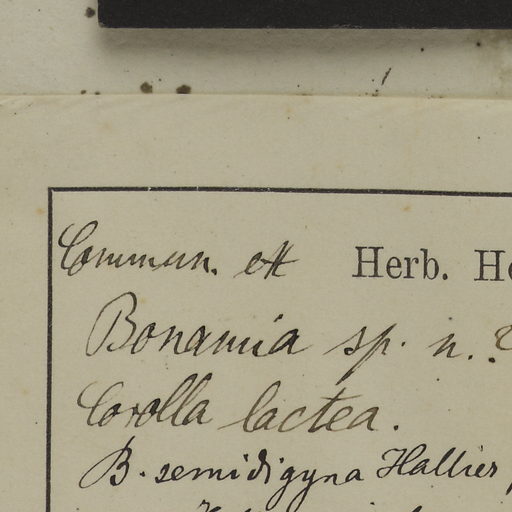 Commun. ex Herb. H
Bonamia sp. n. ?
Corolla lactea.
B. semidigyna Hallier